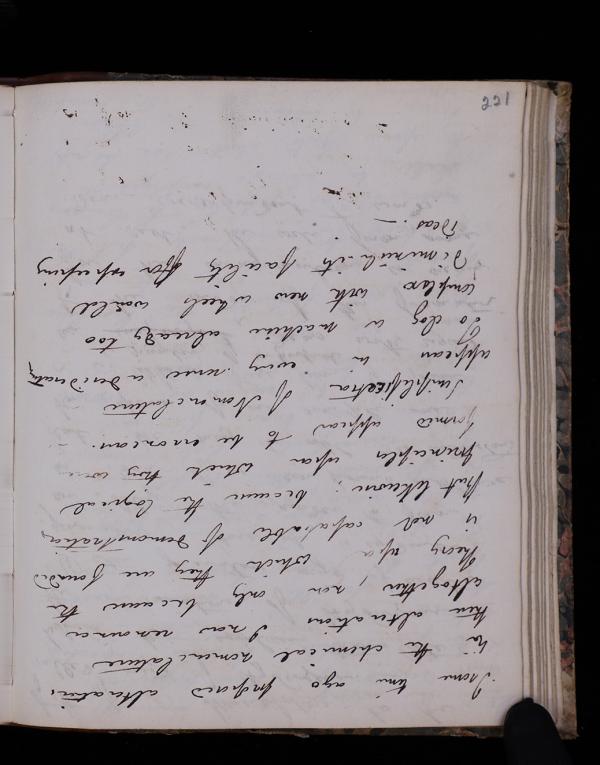 221
Some time ago proposed alterations
in the chemical nomenclature
these alterations I now renounce
altogether, not only because the
theory upon which they are founded
is not capable of demonstration,
but likewise; because the logical
principles upon which they were
formed appear to be erroneous. -
Simplification of Nomenclature
appears in every sense a desideratum
To clog a machine already too
complex with new wheels would
diminish its facility for expressing
ideas. —